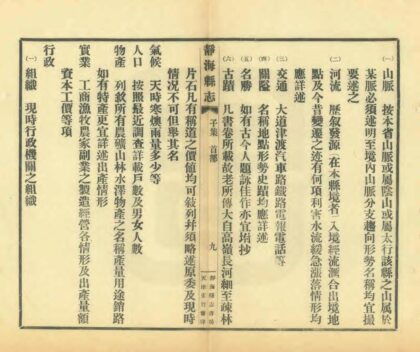 (一) 山脈 本縣山脈或屬陰山或屬太行該縣之山屬於
某脈必須述明至境內山脈分支趨向形勢名稱均宜撮
要述之
(二) 河流 歷叙發源(在本縣境者)入境經流滙合出境地
點及今昔變遷之迹有何項利害水流緩急漲落情形均
應詳述
(三) 交通 大道津渡汽車路鐵路電報電話等
(四) 關隘 名稱地點形勢史蹟均應詳述
(五) 名勝 如有古今人題詠佳作亦宜坿抄
(六) 古蹟 凡書卷所載故老所傳大自高嶺長河細至疎林
靜海縣志 子集 首部 九
片石凡有稱道之價値均可叙列幷須略述原委及現時
情况不可但舉其名
氣候 天時寒燠雨量多少等
人口 按照最近調查詳載戶數及男女人數
物產 列敘所有農礦山林水澤物產之名稱產量用途銷路
如有特產更宜詳述出產情形
實業 工商漁牧農家副業之製造經營各情形及出產量額
資本工價等項
行政
(一) 組織 現時行政機關之組織